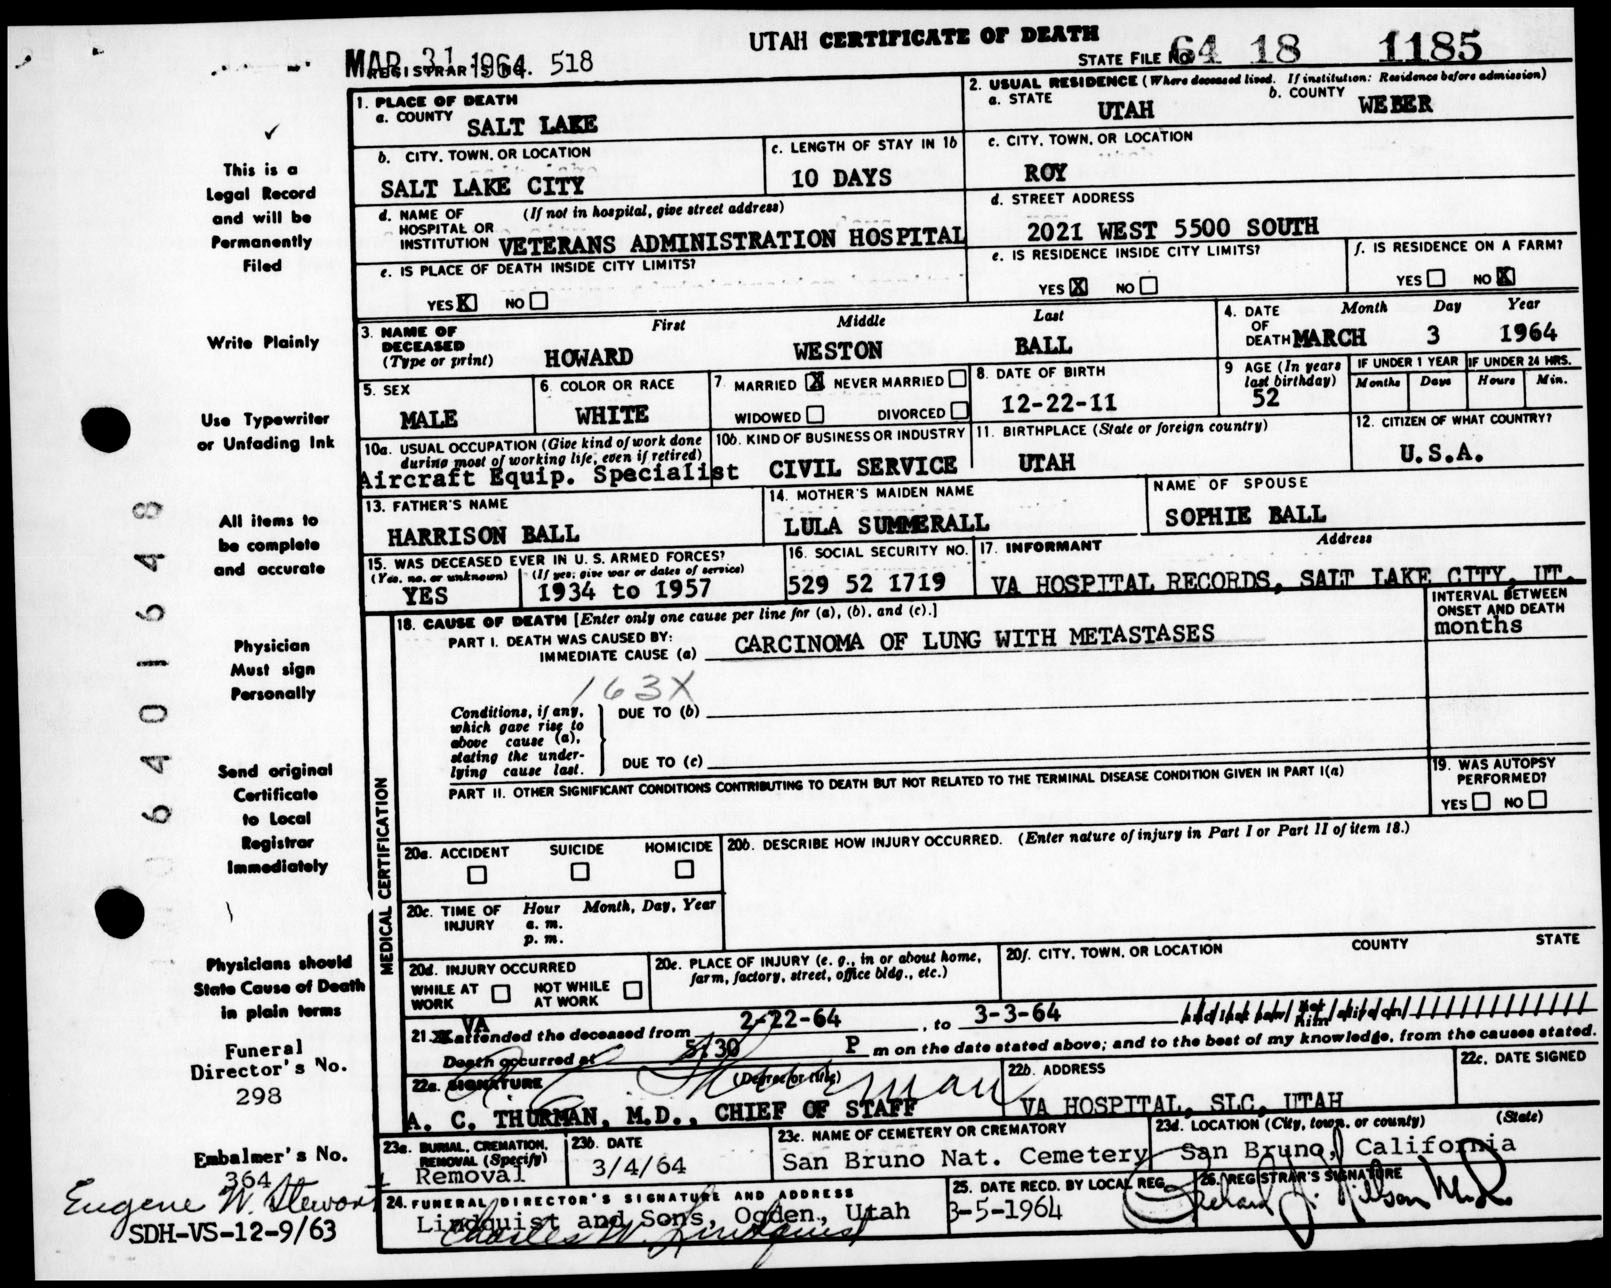 UTAH CERTIFICATE OF DEATH
MAR 31 1964
REGISTRAR'S NO. 518
STATE FILE NO. 64 18 1185
This is a
Legal Record
and will be
Permanently
Filed
Write Plainly
Use Typewriter
or Unfading Ink
All items to
be complete
and accurate
Physician
Must sign
Personally
Send original
Certificate
to Local
Registrar
Immediately
Physicians should
State Cause of Death
in plain terms
Funeral
Director's No.
298
Embalmer's No.
364
Eugene W. Stewart
SDH-VS-12-9/63
64016448
1. PLACE OF DEATH
a. COUNTY SALT LAKE
2. USUAL RESIDENCE (Where deceased lived. If institution: Residence before admission)
a. STATE UTAH b. COUNTY WEBER
b. CITY, TOWN, OR LOCATION
SALT LAKE CITY
c. LENGTH OF STAY IN 1b
10 DAYS
c. CITY, TOWN, OR LOCATION
ROY
d. NAME OF HOSPITAL OR INSTITUTION (If not in hospital, give street address)
VETERANS ADMINISTRATION HOSPITAL
d. STREET ADDRESS
2021 WEST 5500 SOUTH
e. IS PLACE OF DEATH INSIDE CITY LIMITS?
YES X NO
e. IS RESIDENCE INSIDE CITY LIMITS?
YES X NO
f. IS RESIDENCE ON A FARM?
YES NO X
3. NAME OF DECEASED (Type or print)
First Middle Last
HOWARD WESTON BALL
4. DATE OF DEATH Month Day Year
MARCH 3 1964
5. SEX
MALE
6. COLOR OR RACE
WHITE
7. MARRIED X NEVER MARRIED
WIDOWED DIVORCED
8. DATE OF BIRTH
12-22-11
9 AGE (In years last birthday)
52
IF UNDER 1 YEAR IF UNDER 24 HRS.
Months Days Hours Min.
10a. USUAL OCCUPATION (Give kind of work done during most of working life, even if retired)
Aircraft Equip. Specialist
10b. KIND OF BUSINESS OR INDUSTRY
CIVIL SERVICE
11. BIRTHPLACE (State or foreign country)
UTAH
12. CITIZEN OF WHAT COUNTRY?
U.S.A.
13. FATHER'S NAME
HARRISON BALL
14. MOTHER'S MAIDEN NAME
LULA SUMMERALL
NAME OF SPOUSE
SOPHIE BALL
15. WAS DECEASED EVER IN U. S. ARMED FORCES?
(Yes, no, or unknown) (If yes, give war or dates of service)
YES 1934 to 1957
16. SOCIAL SECURITY NO.
529 52 1719
17. INFORMANT Address
VA HOSPITAL RECORDS, SALT LAKE CITY, UT.
MEDICAL CERTIFICATION
18. CAUSE OF DEATH [Enter only one cause per line for (a), (b), and (c).]
INTERVAL BETWEEN ONSET AND DEATH
months
PART I. DEATH WAS CAUSED BY:
IMMEDIATE CAUSE (a) CARCINOMA OF LUNG WITH METASTASES
163X
Conditions, if any, which gave rise to above cause (a), stating the underlying cause last.
DUE TO (b)
DUE TO (c)
PART II. OTHER SIGNIFICANT CONDITIONS CONTRIBUTING TO DEATH BUT NOT RELATED TO THE TERMINAL DISEASE CONDITION GIVEN IN PART I(a)
19. WAS AUTOPSY PERFORMED?
YES NO
20a. ACCIDENT SUICIDE HOMICIDE
20b. DESCRIBE HOW INJURY OCCURRED. (Enter nature of injury in Part I or Part II of item 18.)
20c. TIME OF INJURY Hour Month, Day, Year
a. m.
p. m.
20d. INJURY OCCURRED
WHILE AT WORK NOT WHILE AT WORK
20e. PLACE OF INJURY (e. g., in or about home, farm, factory, street, office bldg., etc.)
20f. CITY, TOWN, OR LOCATION COUNTY STATE
21. VA attended the deceased from 2-22-64, to 3-3-64
Death occurred at 5:30 P m on the date stated above; and to the best of my knowledge, from the causes stated.
22a. SIGNATURE (Degree or title)
A. C. Thurman
A. C. THURMAN, M.D., CHIEF OF STAFF
22b. ADDRESS
VA HOSPITAL, SLC, UTAH
22c. DATE SIGNED
23a. BURIAL, CREMATION, REMOVAL (Specify)
Removal
23b. DATE
3/4/64
23c. NAME OF CEMETERY OR CREMATORY
San Bruno Nat. Cemetery
23d. LOCATION (City, town, or county) (State)
San Bruno, California
24. FUNERAL DIRECTOR'S SIGNATURE AND ADDRESS
Lindquist and Sons, Ogden, Utah
Charles W. Lindquist
25. DATE RECD. BY LOCAL REG.
3-5-1964
26. REGISTRAR'S SIGNATURE